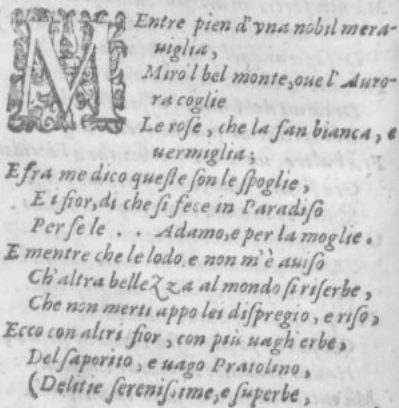 MEntre pien d'vna nobil mera-
uiglia,
Miro'l bel monte, oue l'Auro-
ra coglie
Le rose, che la fan bianca, e
uermiglia;
E fra me dico queste son le spoglie,
E i fior, di che si fece in Paradiso
Per se le . . Adamo, e per la moglie.
E mentre che le lodo e non m'è auiso
Ch'altra bellezza al mondo si riserbe,
Che non merti appo lei dispregio, e riso,
Ecco con altri fior, con più uagh'erbe,
Del saporito, e uago Pratolino,
(Delitie serenissime, e superbe,